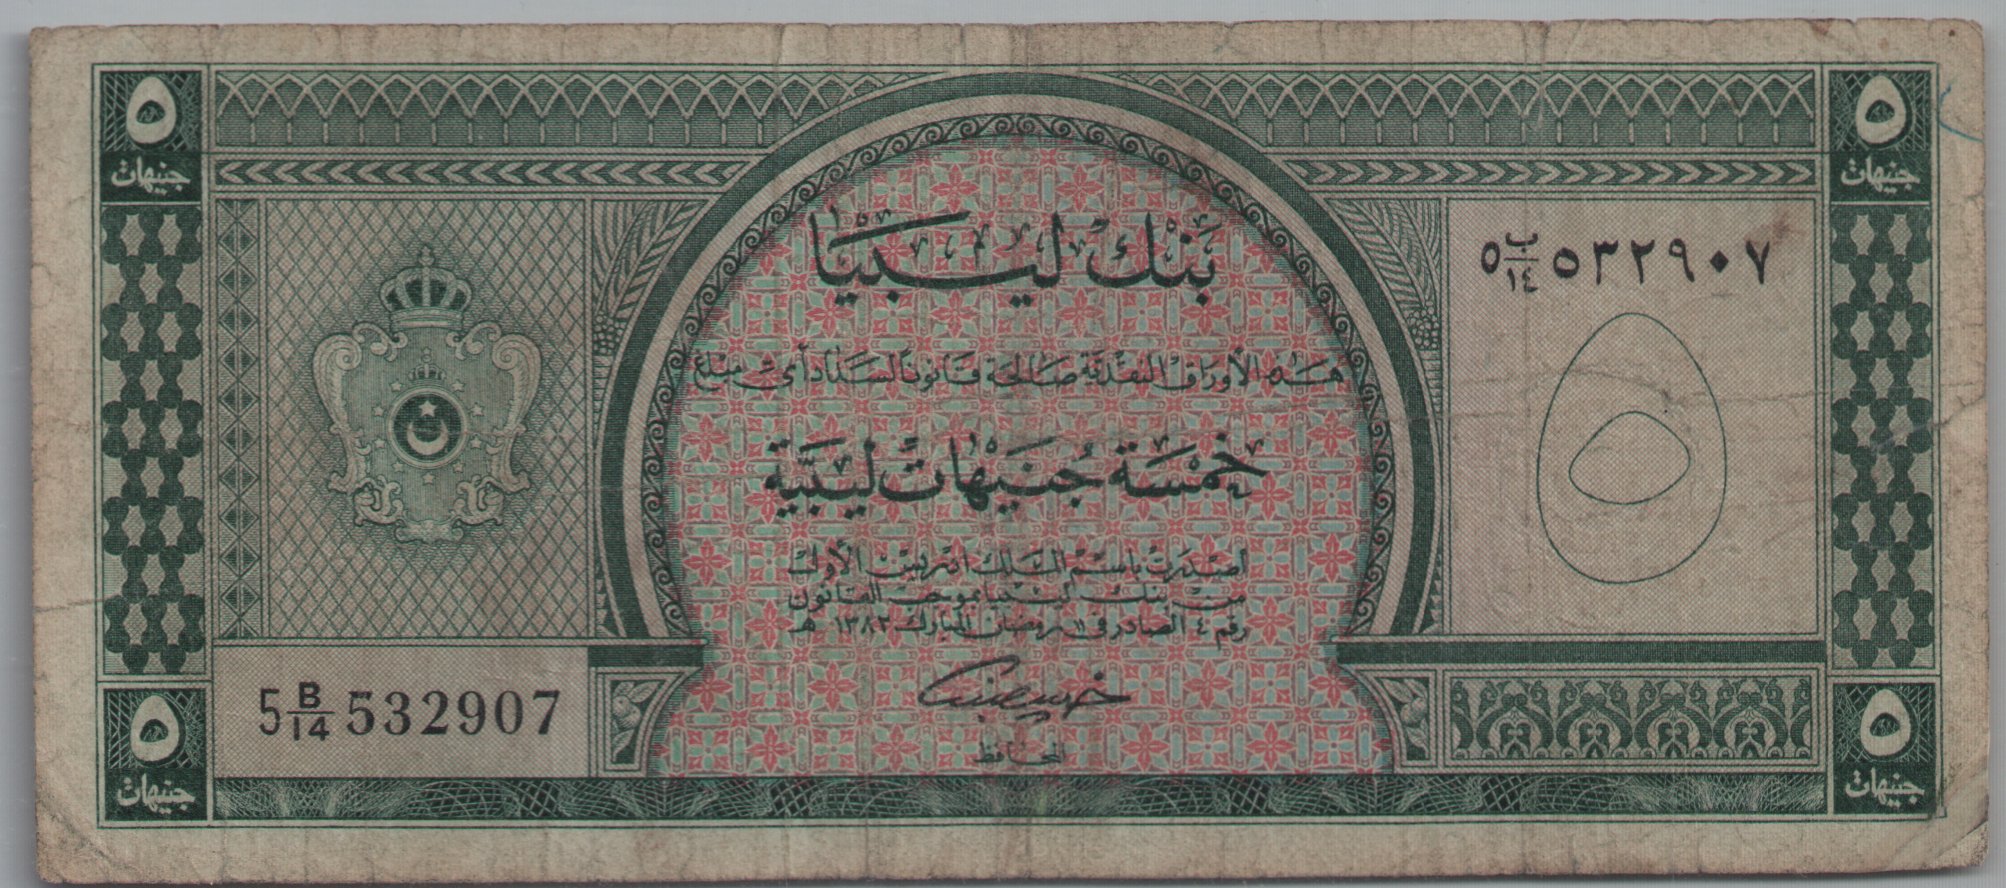 ٥
جنيهات
٥
جنيهات
بَنْكْ لِيــبْيَا
٥ ب/١٤ ٥٣٢٩٠٧
هذه الأوراق النقدية صالحة قانونًا لسداد أي مبلغ
٥
خَمْسَة جُنَيْهَاتْ لِيبِيَّة
أصدرت باسم الملك ادريس الأول
من بنك ليبيا بموجب القانون
رقم ٤ الصادر في ١١ رمضان المبارك ١٣٨٢ هـ
5 B/14 532907
المحافظ
٥
جنيهات
٥
جنيهات